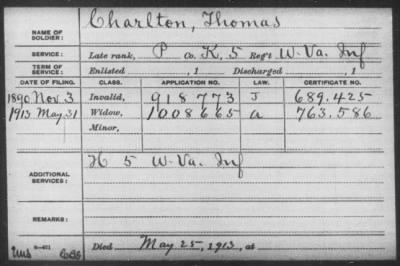 NAME OF SOLDIER: Charlton, Thomas
SERVICE: Late rank, P Co. K, 5 Reg't W. Va. Inf
TERM OF SERVICE: Enlisted , 1 Discharged , 1
DATE OF FILING. CLASS. APPLICATION NO. LAW. CERTIFICATE NO.
1890 Nov. 3 Invalid, 918773 J 689.425
1913 May. 31 Widow, 1008665 a 763.586
Minor,
ADDITIONAL SERVICES: H 5 W. Va. Inf
REMARKS:
Died May 25, 1913, at